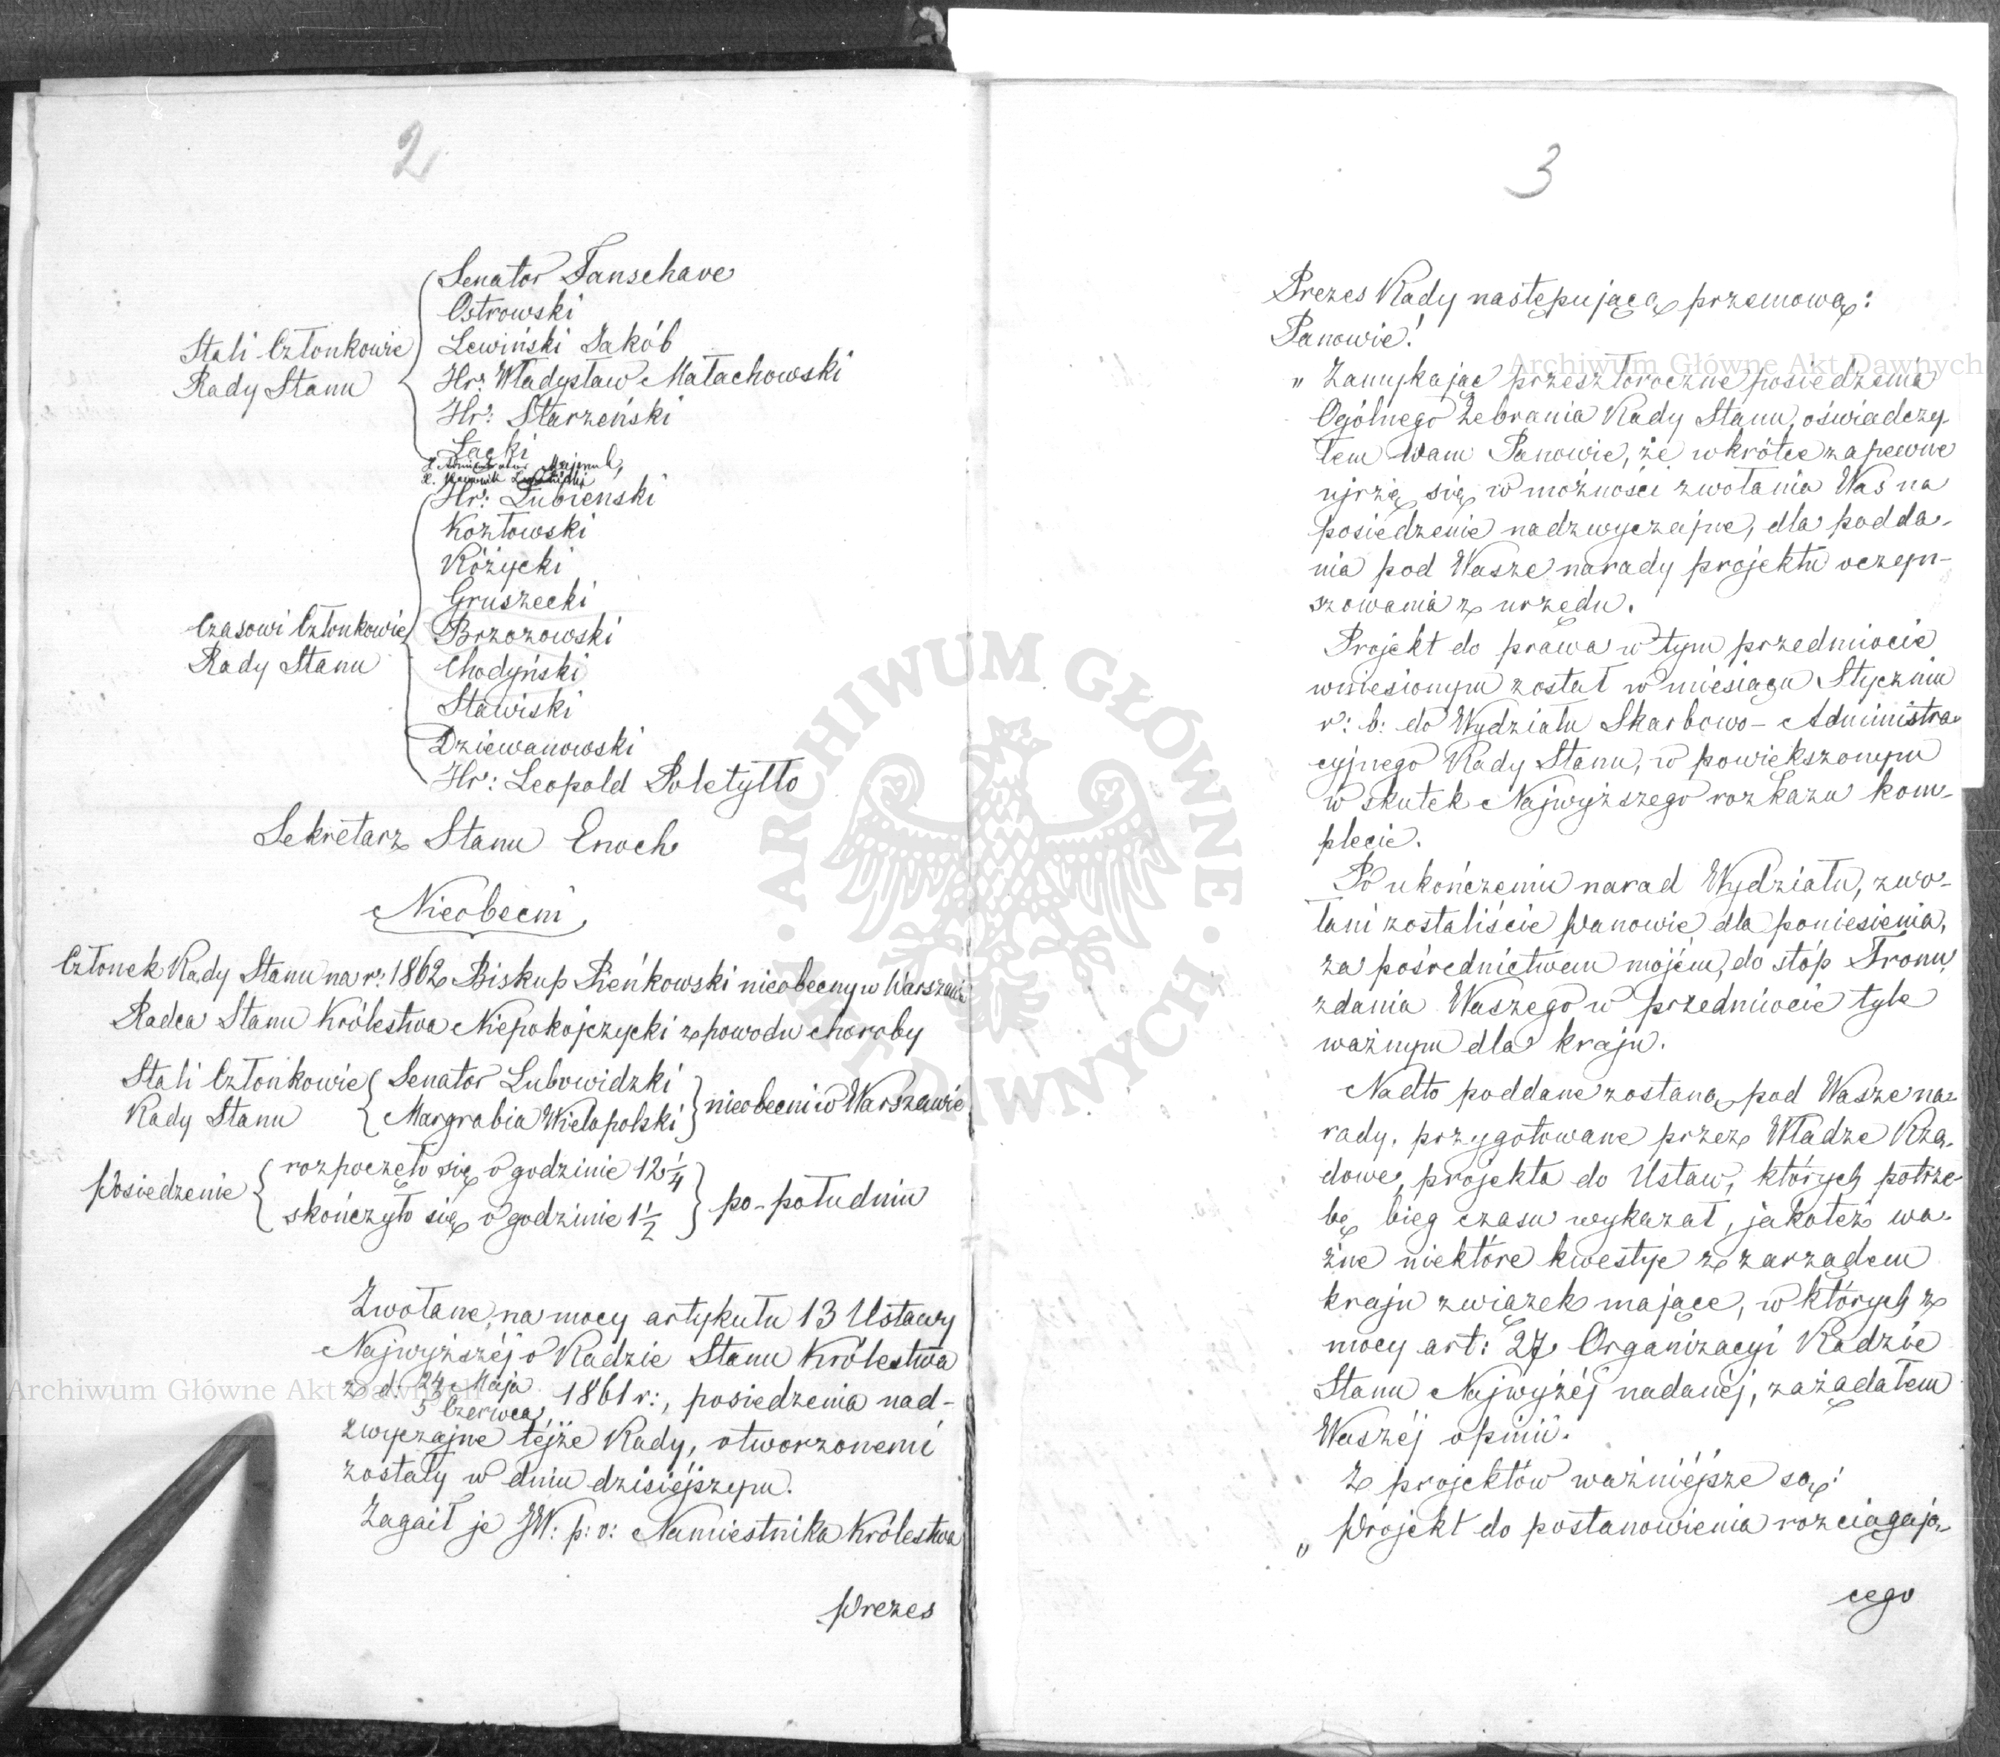 2
Stali Członkowie
Rady Stanu
Senator Fanschave
Ostrowski
Lewiński Jakób
Hr: Władysław Małachowski
Hr: Starzeński
Łącki
Czasowi Członkowie
Rady Stanu
Hr: Łubieński
Kozłowski
Różycki
Gruszecki
Brzozowski
Chodyński
Stawiski
Dziewanowski
Hr: Leopold Poletyłło
Sekretarz Stanu Enoch
Nieobecni
Członek Rady Stanu na r: 1862 Biskup Pieńkowski nieobecny w Warszawie
Radca Stanu Królestwa Niepokojczycki z powodu choroby
Stali Członkowie
Rady Stanu
Senator Lubowidzki
Margrabia Wielopolski
nieobecni w Warszawie
Posiedzenie
rozpoczęło się o godzinie 12 1/4
skończyło się o godzinie 1 1/2
po-południu
Zwołane, na mocy artykułu 13 Ustawy
Najwyższéj o Radzie Stanu Królestwa
z d. 24 Maja
5 Czerwca 1861 r:, posiedzenia nad-
zwyczajne téjże Rady, otworzonemi
zostały w dniu dzisiéjszym.
Zagaił je JW: p: o: Namiestnika Królestwa
Prezes
3
Prezes Rady następującą przemową:
Panowie!
„ Zamykając przeszłoroczne posiedzenia
Ogólnego Zebrania Rady Stanu, oświadczy-
łem Wam Panowie, że wkrótce zapewne
ujrzę się w możności zwołania Was na
posiedzenie nadzwyczajne, dla podda-
nia pod Wasze narady projektu oczyn-
szowania z urzędu.
Projekt do prawa w tym przedmiocie
wniesionym został w miesiącu Styczniu
r: b: do Wydziału Skarbowo-Administra-
cyjnego Rady Stanu, w powiększonym
w skutek Najwyższego rozkazu kom-
plecie.
Po ukończeniu narad Wydziału, zwo-
łani zostaliście Panowie dla poniesienia,
za pośrednictwem mojém, do stóp Tronu,
zdania Waszego w przedmiocie tyle
ważnym dla kraju.
Nadto poddane zostaną pod Wasze na-
rady, przygotowane przez Władze Rzą-
dowe, projekta do Ustaw, których potrze-
bę bieg czasu wykazał, jakoteż wa-
żne niektóre kwestye z zarządem
kraju związek mające, w których z
mocy art: 27 Organizacyi Radzie
Stanu Najwyżéj nadanéj, zażądałem
Waszéj opinii.
Z projektów ważniéjsze są:
„ Projekt do postanowienia rozciągają-
cego
Archiwum Główne Akt Dawnych
Archiwum Główne Akt Dawnych
ARCHIWUM GŁÓWNE AKT DAWNYCH